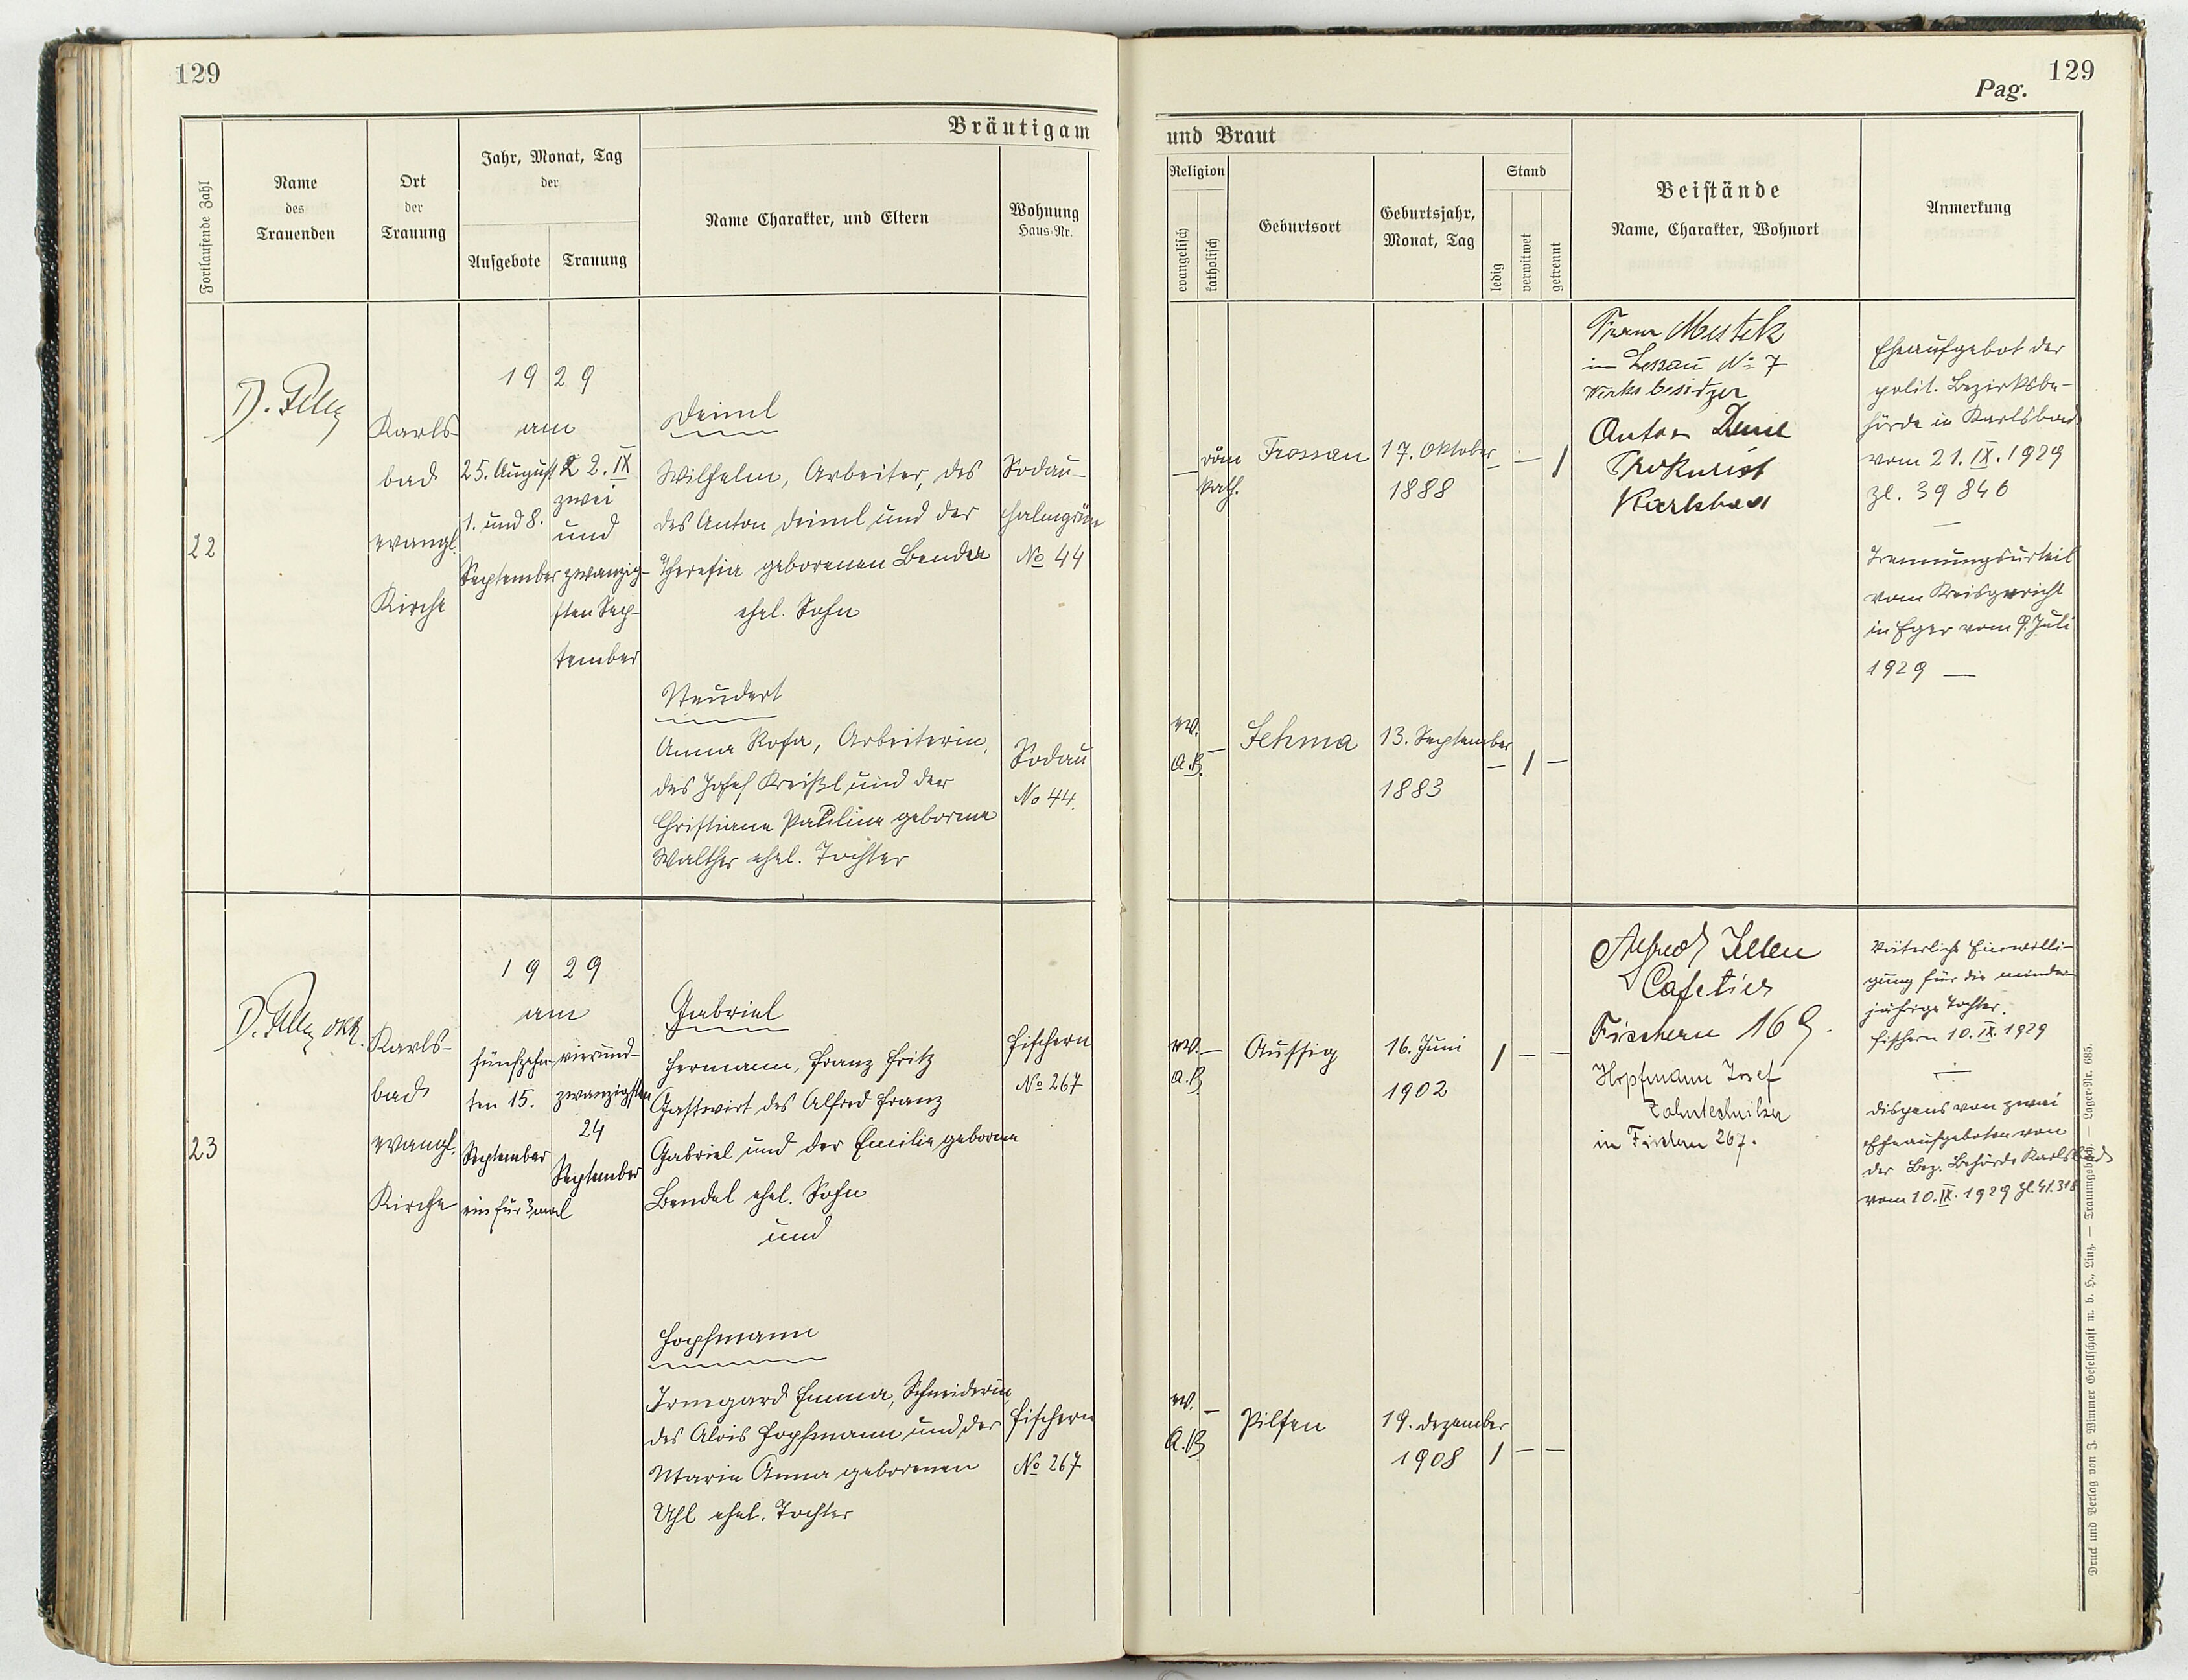 129
Bräutigam
Fortlaufende Zahl
Name
des
Trauenden
Ort
der
Trauung
Jahr, Monat, Tag
der
Aufgebote
Trauung
Name Charakter, und Eltern
Wohnung
Haus-Nr.
22
Karls-
bad
evangl.
Kirche
1929
am
25. August
1. und 8.
September
22. IX
zwei
und
zwanzig-
sten Sep-
tember
Deiml
Wilhelm, Arbeiter, des
des Anton Deiml und der
Theresia geborenen Bender
ehel. Sohn
Sodau-
halmgrün
No 44
Neudert
Anna Rosa, Arbeiterin,
des Josef Kreißl und der
Christiane Pauline geborene
Walther ehel. Tochter
Sodau
No 44.
23
Karls-
bad
evangl.
Kirche
1929
am
fünfzehn-
ten 15.
September
ein für 3mal
vierund-
zwanzigsten
24
September
Gabriel
Hermann, Franz Fritz
Gastwirt des Alfred Franz
Gabriel und der Emilie geborene
Bendel ehel. Sohn
und
Fischern
No 267
Hopfmann
Irmgard Emma, Schneiderin,
des Alois Hopfmann und der
Maria Anna geborenen
Uhl ehel. Tochter
Fischern
No 267
Pag. 129
und Braut
Religion
evangelisch
katholisch
Geburtsort
Geburtsjahr,
Monat, Tag
Stand
ledig
verwitwet
getrennt
Beistände
Name, Charakter, Wohnort
Anmerkung
— röm
kath.
Frossau
17. Oktober
1888
— — 1
Franz Mestek
in Lessau No 7
Werksbesitzer
Anton
Prokurist
Karlsbad
Eheaufgebot der
polit. Bezirksbe-
hörde in Karlsbad
vom 21. IX. 1929
zl. 39 846
—
Trennungsurteil
vom Kreisgericht
in Eger vom 9. Juli
1929 —
ev. —
A.B.
Sehma
13. September
1883
— 1 —
ev. —
A.B.
Aussig
16. Juni
1902
1 — —
Alfred
Cafetier
Fischern 169.
Hopfmann Josef
Zahntechniker
in Fischern 267.
Väterliche Einwilli-
gung für die minder
jährige Tochter.
Fischern 10. IX. 1929
—
Dispens von zwei
Eheaufgeboten von
der Bez. Behörde Karlsbad
vom 10. IX. 1929 zl. 41.318
ev. —
A.B.
Pilsen
19. Dezember
1908
1 — —
Druck und Verlag von J. Wimmer Gesellschaft m. b. H., Linz. — Trauungsbuch. — Lager-Nr. 685.